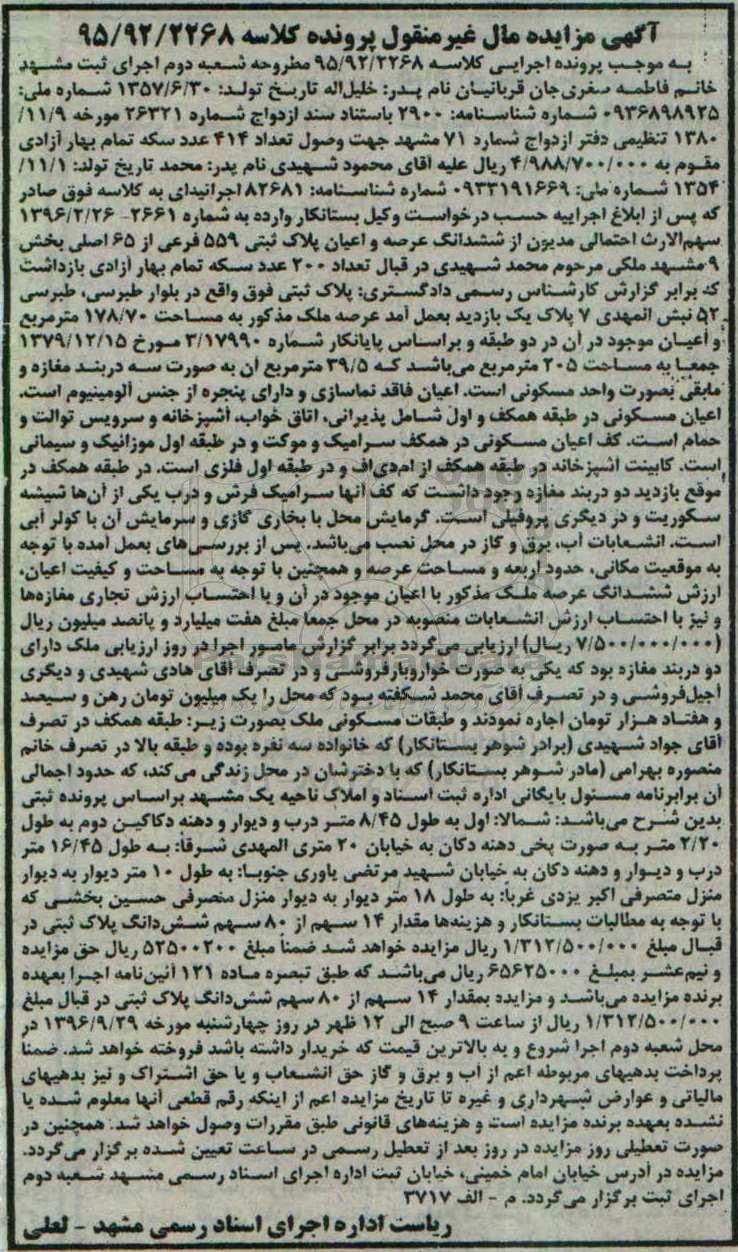 آگهی مزایده مال غیرمنقول پرونده کلاسه ۹۵/۹۲/۲۲۶۸
به موجب پرونده اجرایی کلاسه ۹۵/۹۲/۲۲۶۸ مطروحه شعبه دوم اجرای ثبت مشهد
خانم فاطمه صغری‌جان قربانیان نام پدر: خلیل‌اله تاریخ تولد: ۱۳۵۷/۶/۳۰ شماره ملی:
۰۹۳۶۸۹۸۹۲۵ شماره شناسنامه: ۲۹۰۰ باستناد سند ازدواج شماره ۲۶۳۲۱ مورخه ۱۱/۹/
۱۳۸۰ تنظیمی دفتر ازدواج شماره ۷۱ مشهد جهت وصول تعداد ۴۱۴ عدد سکه تمام بهار آزادی
مقوم به ۴/۹۸۸/۷۰۰/۰۰۰ ریال علیه آقای محمود شهیدی نام پدر: محمد تاریخ تولد: ۱۱/۱/
۱۳۵۴ شماره ملی: ۰۹۳۳۱۹۱۶۶۹ شماره شناسنامه: ۸۲۶۸۱ اجرائیه‌ای به کلاسه فوق صادر
که پس از ابلاغ اجراییه حسب درخواست وکیل بستانکار وارده به شماره ۲۶۶۱- ۱۳۹۶/۲/۲۶
سهم‌الارث احتمالی مدیون از ششدانگ عرصه و اعیان پلاک ثبتی ۵۵۹ فرعی از ۶۵ اصلی بخش
۹ مشهد ملکی مرحوم محمد شهیدی در قبال تعداد ۲۰۰ عدد سکه تمام بهار آزادی بازداشت
که برابر گزارش کارشناس رسمی دادگستری: پلاک ثبتی فوق واقع در بلوار طبرسی، طبرسی
۵۲ نبش المهدی ۷ پلاک یک بازدید بعمل آمد عرصه ملک مذکور به مساحت ۱۷۸/۷۰ مترمربع
و اعیان موجود در آن در دو طبقه و براساس پایانکار شماره ۳/۱۷۹۹۰ مورخ ۱۳۷۹/۱۲/۱۵
جمعا به مساحت ۲۰۵ مترمربع می‌باشد که ۳۹/۵ مترمربع آن به صورت سه دربند مغازه و
مابقی بصورت واحد مسکونی است. اعیان فاقد نماسازی و دارای پنجره از جنس آلومینیوم است.
اعیان مسکونی در طبقه همکف و اول شامل پذیرائی، اتاق خواب، آشپزخانه و سرویس توالت و
حمام است. کف اعیان مسکونی در همکف سرامیک و موکت و در طبقه اول موزائیک و سیمانی
است. کابینت آشپزخانه در طبقه همکف از ام‌دی‌اف و در طبقه اول فلزی است. در طبقه همکف در
موقع بازدید دو دربند مغازه وجود داشت که کف آنها سرامیک فرش و درب یکی از آن‌ها شیشه
سکوریت و در دیگری پروفیلی است. گرمایش محل با بخاری گازی و سرمایش آن با کولر آبی
است. انشعابات آب، برق و گاز در محل نصب می‌باشد. پس از بررسی‌های بعمل آمده با توجه
به موقعیت مکانی، حدود اربعه و مساحت عرصه و همچنین با توجه به مساحت و کیفیت اعیان،
ارزش ششدانگ عرصه ملک مذکور با اعیان موجود در آن و با احتساب ارزش تجاری مغازه‌ها
و نیز با احتساب ارزش انشعابات منصوبه در محل جمعا مبلغ هفت میلیارد و پانصد میلیون ریال
(۷/۵۰۰/۰۰۰/۰۰۰ ریال) ارزیابی می‌گردد برابر گزارش مامور اجرا در روز ارزیابی ملک دارای
دو دربند مغازه بود که یکی به صورت خواروبارفروشی و در تصرف آقای هادی شهیدی و دیگری
آجیل‌فروشی و در تصرف آقای محمد شکفته بود که محل را یک میلیون تومان رهن و سیصد
و هفتاد هزار تومان اجاره نمودند و طبقات مسکونی ملک بصورت زیر: طبقه همکف در تصرف
آقای جواد شهیدی (برادر شوهر بستانکار) که خانواده سه نفره بوده و طبقه بالا در تصرف خانم
منصوره بهرامی (مادر شوهر بستانکار) که با دخترشان در محل زندگی می‌کند، که حدود اجمالی
آن برابرنامه مسئول بایگانی اداره ثبت اسناد و املاک ناحیه یک مشهد براساس پرونده ثبتی
بدین شرح می‌باشد: شمالا: اول به طول ۸/۴۵ متر درب و دیوار و دهنه دکاکین دوم به طول
۲/۲۰ متر به صورت پخی دهنه دکان به خیابان ۲۰ متری المهدی شرقا: به طول ۱۶/۴۵ متر
درب و دیوار و دهنه دکان به خیابان شهید مرتضی یاوری جنوبا: به طول ۱۰ متر دیوار به دیوار
منزل متصرفی اکبر یزدی غربا: به طول ۱۸ متر دیوار به دیوار منزل متصرفی حسین بخشی که
با توجه به مطالبات بستانکار و هزینه‌ها مقدار ۱۴ سهم از ۸۰ سهم شش‌دانگ پلاک ثبتی در
قبال مبلغ ۱/۳۱۲/۵۰۰/۰۰۰ ریال مزایده خواهد شد ضمنا مبلغ ۵۲۵۰۰۲۰۰ ریال حق مزایده
و نیم‌عشر بمبلغ ۶۵۶۲۵۰۰۰ ریال می‌باشد که طبق تبصره ماده ۱۲۱ آئین‌نامه اجرا بعهده
برنده مزایده می‌باشد و مزایده بمقدار ۱۴ سهم از ۸۰ سهم شش‌دانگ پلاک ثبتی در قبال مبلغ
۱/۳۱۲/۵۰۰/۰۰۰ ریال از ساعت ۹ صبح الی ۱۲ ظهر در روز چهارشنبه مورخه ۱۳۹۶/۹/۲۹ در
محل شعبه دوم اجرا شروع و به بالاترین قیمت که خریدار داشته باشد فروخته خواهد شد. ضمنا
پرداخت بدهیهای مربوطه اعم از آب و برق و گاز حق انشعاب و یا حق اشتراک و نیز بدهیهای
مالیاتی و عوارض شهرداری و غیره تا تاریخ مزایده اعم از اینکه رقم قطعی آنها معلوم شده یا
نشده بعهده برنده مزایده است و هزینه‌های قانونی طبق مقررات وصول خواهد شد. همچنین در
صورت تعطیلی روز مزایده در روز بعد از تعطیل رسمی در ساعت تعیین شده برگزار می‌گردد.
مزایده در آدرس خیابان امام خمینی، خیابان ثبت اداره اجرای اسناد رسمی مشهد شعبه دوم
اجرای ثبت برگزار می‌گردد. م - الف ۳۷۱۷
ریاست اداره اجرای اسناد رسمی مشهد - لعلی